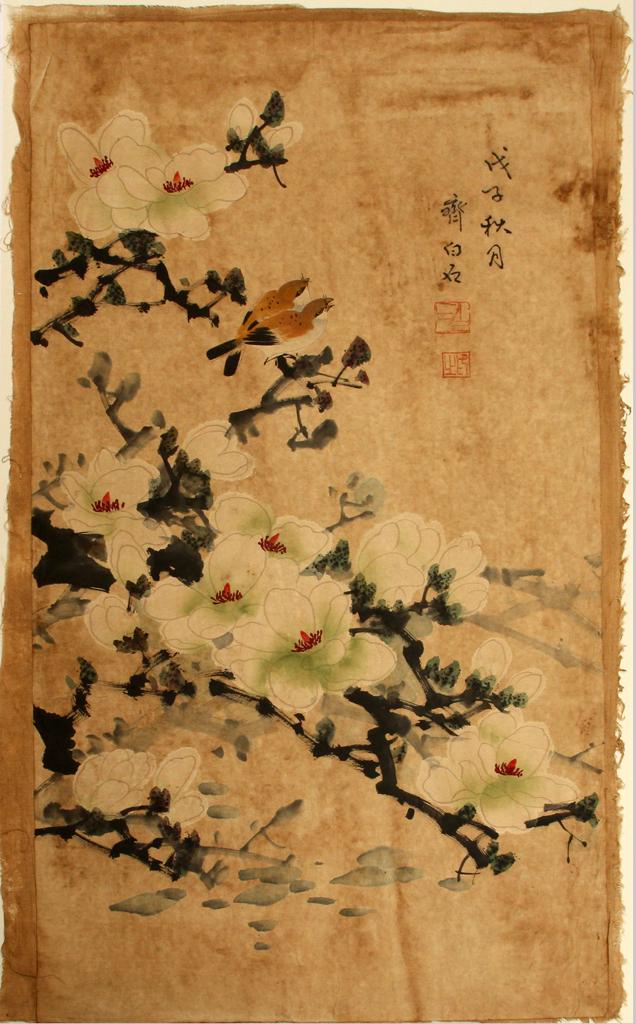 戊子秋月
齊白石